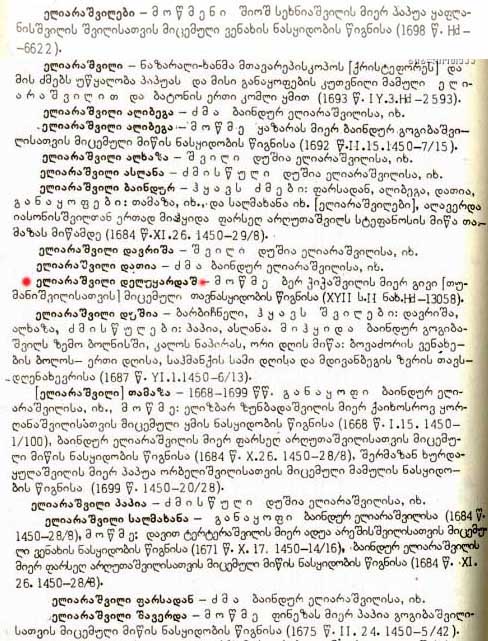 ელიარაშვილები – მ ო წ მ ე ნ ი შიოშ სეხნიაშვილის მიერ პაპუა ყაფლა-
ნისშვილის შვილისათვის მიცემული ვენახის ნასყიდობის წიგნისა (1698 წ. Hd –
–6622).
ელიარაშვილი – ნაზარალი-ხანმა მთავარეპისკოპოს [ქრისტეფორეს] და
მის ძმებს უწყალობა პიპუას და მისი განაყოფების კუთვნილი მამული ე ლ ი –
ა რ ა შ ვ ი ლ ი თ და ბატონის ერთი კომლი ყმით (1693 წ. IY.3.Hd–2593).
ელიარაშვილი ალიბეგა – ძ მ ა ბაინდურ ელიარაშვილისა, იხ.
ელიარაშვილი ალიბეგა – მ ო წ მ ე ყაზარას მიერ ბაინდურ გოგიბაშვი-
ლისათვის მიცემული მიწის ნასყიდობის წიგნისა (1692 წ.II.15.1450–7/15).
ელიარაშვილი ალხაზა – შ ვ ი ლ ი დუშია ელიარაშვილისა, იხ.
ელიარაშვილი ასლანა – ძ მ ი ს წ უ ლ ი დუშია ელიარაშვილისა, იხ.
ელიარაშვილი ბაინდურ – ჰ ყ ა ვ ს ძ მ ე ბ ი: ფარსადან, ალიბეგა, დათია,
გ ა ნ ა ყ ო ფ ე ბ ი: თამაზა, იხ., და სალმახანა იხ. [ელიარაშვილები], ალავერდა
იასონისშვილთან ერთად მიჰყიდა ფარსეღ არღუთაშვილს სტეფანოსის მიწა თა-
მაზას მიწამდე (1684 წ.XI.26. 1450–29/8).
ელიარაშვილი დავრიშა – შ ვ ი ლ ი დუშია ელიარაშვილისა, იხ.
ელიარაშვილი დათია – ძ მ ა ბაინდურ ელიარაშვილისა, იხ.
ელიარაშვილი დელუყარდაშ – მ ო წ მ ე ბერ ჭიჭაშვილის მიერ გივი [თუ-
მანიშვილისათვის] მიცემული თავნასყიდობის წიგნისა (XYII ს.II ნახ.Hd–13058).
ელიარაშვილი დუშია – ბარბიჩნელი, ჰ ყ ა ვ ს შ ვ ი ლ ე ბ ი: დავრიშა,
ალხაზა, ძ მ ი ს წ უ ლ ე ბ ი: პაპია, ასლანა. მ ი ჰ ყ ი დ ა ბაინდურ გოგიბა-
შვილს ზემო ბოლნისში, კალოს ნაპირას, ორი დღის მიწა: ბოვადორის ვენახე-
ბის ბოლოს– ერთი დღისა, საჰმანქის სამი დღისა და მდივანბეგის ზვრის თავს–
დღენახევრისა (1687 წ. YI.1.1450–6/13).
[ელიარაშვილი] თამაზა – 1668–1699 წწ. გ ა ნ ა ყ ო ფ ი ბაინდურ ელი-
არაშვილისა, იხ., მ ო წ მ ე: ელიზბარ ზუნბადაშვილის მიერ ქაიხოსროვ ყორ-
ღანაშვილისათვის მიცემული ყმის ნასყიდობის წიგნისა (1668 წ. I.15. 1450–
1/100), ბაინდურ ელიარაშვილის მიერ ფარსეღ არღუთაშვილისათვის მიცემუ-
ლი მიწის ნასყიდობის წიგნისა (1684 წ. X.26. 1450–28/8), შერმაზან ხურდა-
ყულაშვილის მიერ პაპუა ორბელიშვილისათვის მიცემული მამულის ნასყიდო-
ბის წიგნისა (1699 წ. 1450–20/28).
ელიარაშვილი პაპია – ძ მ ი ს წ უ ლ ი დუშია ელიარაშვილისა, იხ.
ელიარაშვილი სალმახანა – გ ა ნ ა ყ ო ფ ი ბაინდურ ელიარაშვილისა (1684 წ.
1450–28/8), მ ო წ მ ე: დავით ტერტერაშვილის მიერ ადუა არეშისშვილისათვის მიცემუ-
ლი ვენახის ნასყიდობის წიგნისა (1671 წ. X. 17. 1450–14/16), ბაინდურ ელიარაშვილის
მიერ ფარსეღ არღუთაშვილისათვის მიცემული მიწის ნასყიდობის წიგნისა (1684 წ. XI.
26. 1450–28/8).
ელიარაშვილი ფარსადან – ძ მ ა ბაინდურ ელიარაშვილისა, იხ.
ელიარაშვილი შავერდა – მ ო წ მ ე ფინეზას მიერ პაპია გოგიბაშვილი-
სათვის მიცემული მიწის ნასყიდობის წიგნისა (1675 წ. II. 24. 1450–5/42).